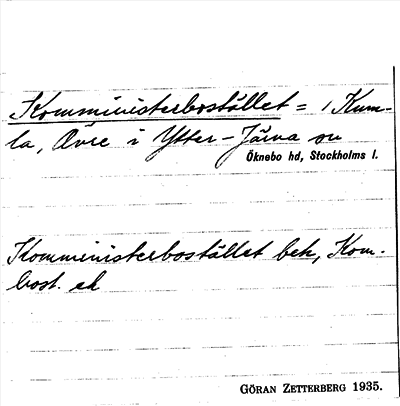 Komministerbostället = 1 Kum-
la, Övre i Ytter-Järna sn
Öknebo hd, Stockholms l.
Komministerbostället bek, Kom.
bost. ek
GÖRAN ZETTERBERG 1935.